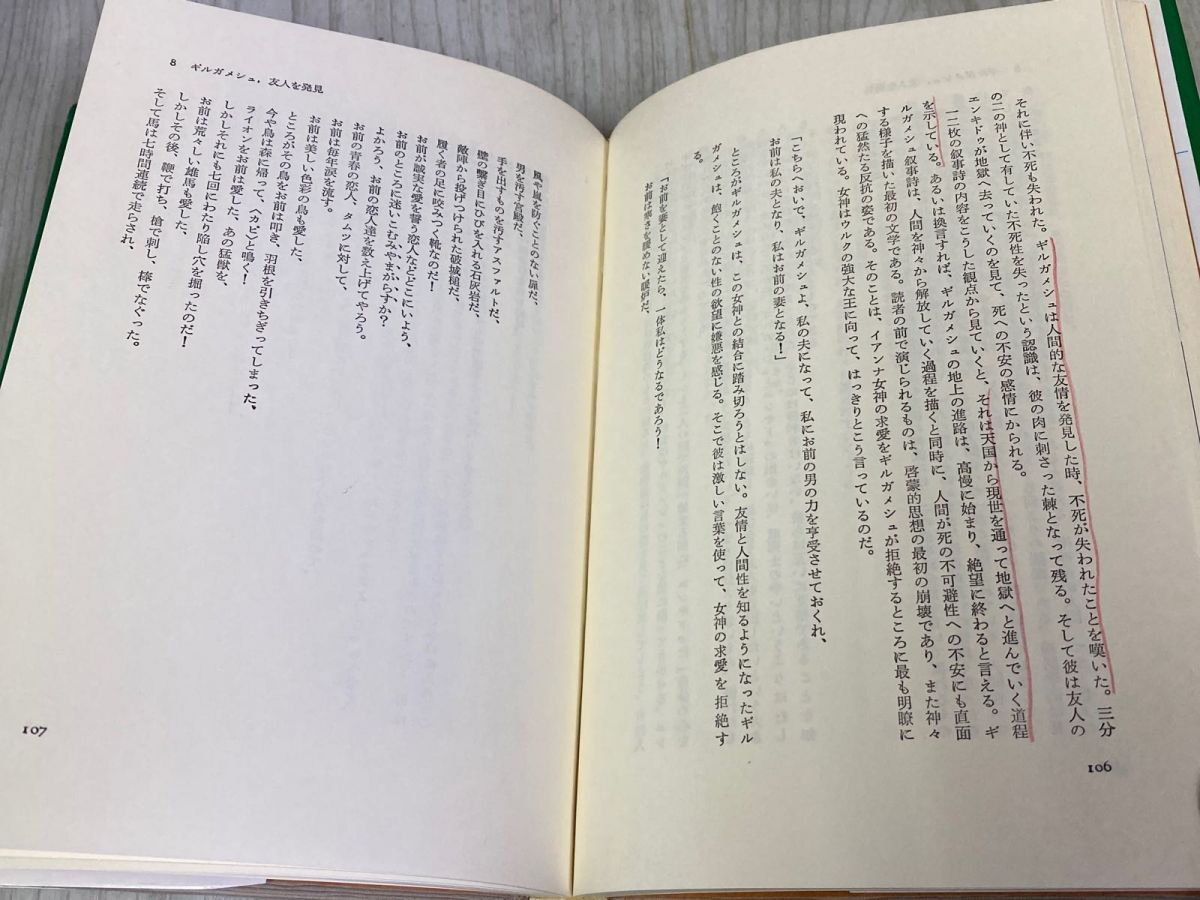 それに伴い不死も失われた。ギルガメシュは人間的な友情を発見した時、不死が失われたことを嘆いた。三分
の二の神として有していた不死性を失ったという認識は、彼の肉に刺さった棘となって残る。そして彼は友人の
エンキドゥが地獄へ去っていくのを見て、死への不安の感情にかられる。
一二枚の叙事詩の内容をこうした観点から見ていくと、それは天国から現世を通って地獄へと進んでいく道程
を示している。あるいは換言すれば、ギルガメシュの地上の進路は、高慢に始まり、絶望に終わると言える。ギ
ルガメシュ叙事詩は、人間を神々から解放していく過程を描くと同時に、人間が死の不可避性への不安にも直面
する様子を描いた最初の文学である。読者の前で演じられるものは、啓蒙的思想の最初の崩壊であり、また神々
への猛然たる反抗の姿である。そのことは、イアンナ女神の求愛をギルガメシュが拒絶するところに最も明瞭に
現われている。女神はウルクの強大な王に向って、はっきりとこう言っているのだ。
「こちらへおいで、ギルガメシュよ、私の夫になって、私にお前の男の力を享受させておくれ、
お前は私の夫となり、私はお前の妻となる！」
ところがギルガメシュは、この女神との結合に踏み切ろうとはしない。友情と人間性を知るようになったギル
ガメシュは、飽くことのない性の欲望に嫌悪を感じる。そこで彼は激しい言葉を使って、女神の求愛を拒絶す
る。
「お前を妻として迎えたら、一体私はどうなるであろう！
お前は寒さを暖めない暖炉だ、
106
8 ギルガメシュ，友人を発見
風や嵐を防ぐことのない扉だ、
男を汚す宮殿だ、
手を出すものを汚すアスファルトだ、
壁の繋ぎ目にひびを入れる石灰岩だ、
敵陣から投げつけられた破城槌だ、
履く者の足に咬みつく靴なのだ！
お前が誠実な愛を誓う恋人などどこにいよう、
お前のところに迷いこむみやまがらすか？
よかろう、お前の恋人達を数え上げてやろう。
お前の青春の恋人、タムツに対して、
お前は毎年涙を流す。
お前は美しい色彩の鳥も愛した、
ところがその鳥をお前は叩き、羽根を引きちぎってしまった、
今や鳥は森に帰って、〈カピ〉と鳴く！
ライオンをお前は愛した、あの猛獣を、
しかしそれにも七回にわたり陥し穴を掘ったのだ！
お前は荒々しい雄馬も愛した、
しかしその後、鞭で打ち、槍で刺し、棒でなぐった。
そして馬は七時間連続で走らされ、
107